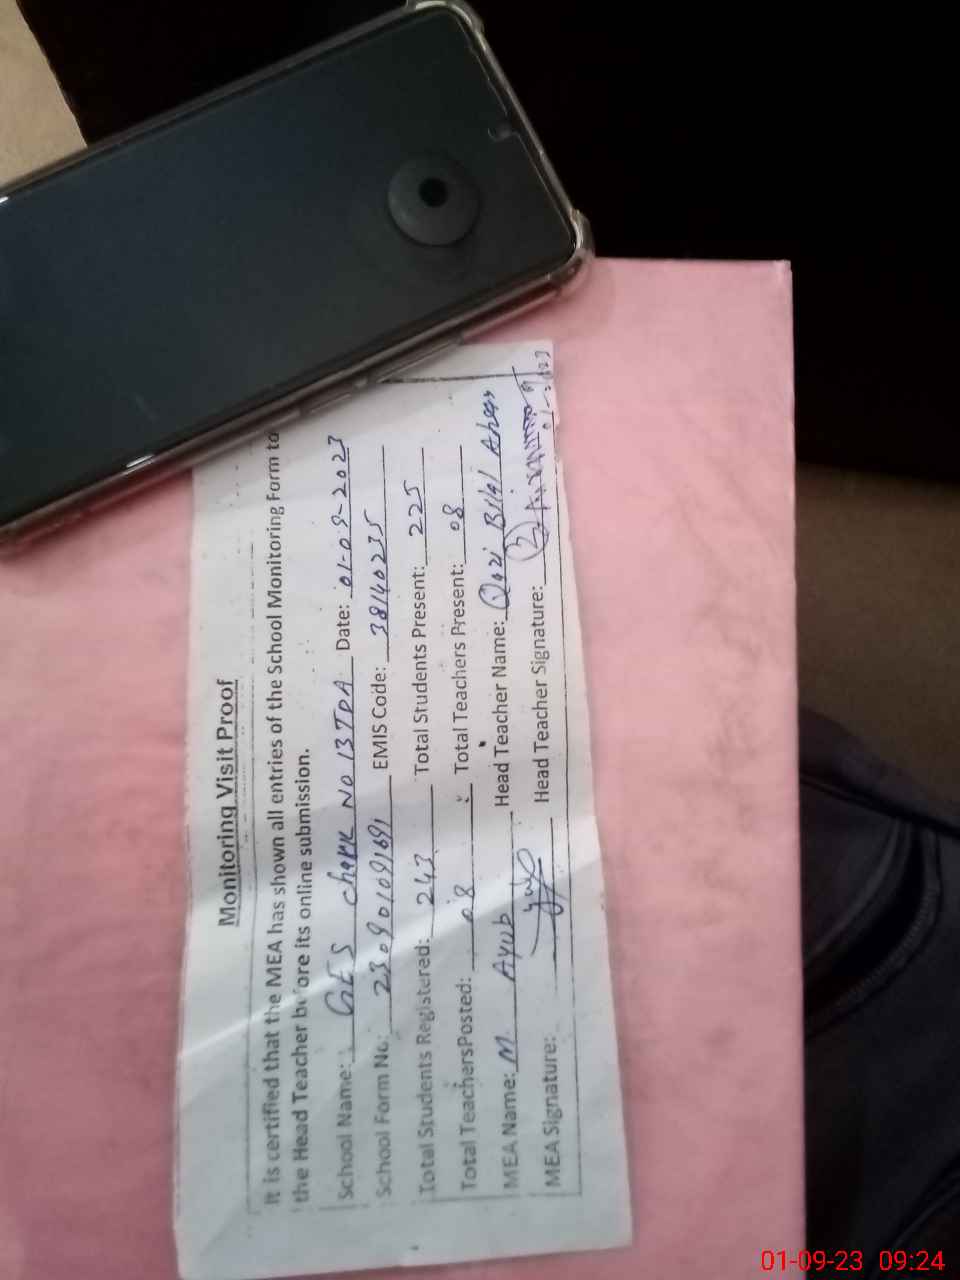 Monitoring Visit Proof
It is certified that the MEA has shown all entries of the School Monitoring Form to
the Head Teacher before its online submission.
School Name: GES Chakk No 13 TDA Date: 01-09-2023
School Form No: 230901091691 EMIS Code: 38140235
Total Students Registered: 243 Total Students Present: 225
Total TeachersPosted: 08 Total Teachers Present: 08
MEA Name: M Ayub Head Teacher Name: Qazi Bilal Ahmad
MEA Signature: Head Teacher Signature:
01-09-23 09:24